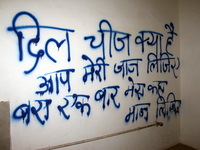 दिल चीज क्या है
आप मेरी जान लिजिए
बस एक बार मेरा कहा
मान लिजिए